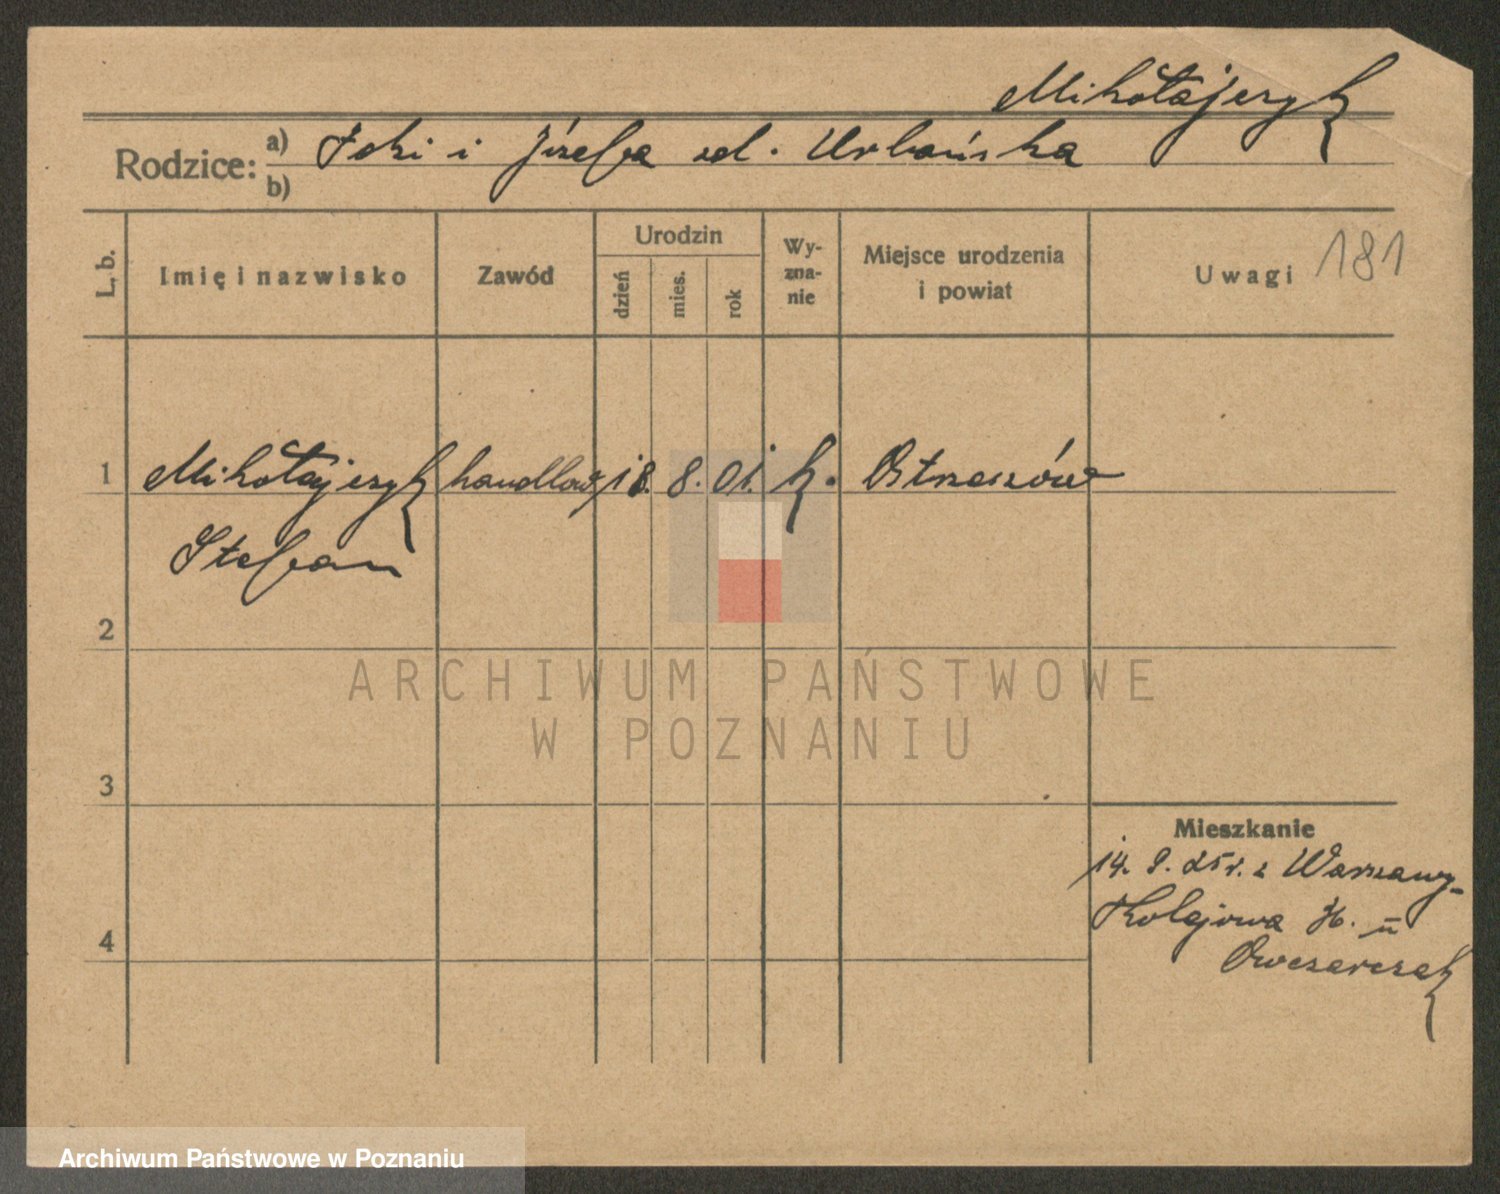 Mikołajczyk
Rodzice: a) i Józefa zd. Urbańska
b)
L. b. Imię i nazwisko Zawód Urodzin dzień mies. rok Wy-zna-nie Miejsce urodzenia i powiat Uwagi 181
1 Mikołajczyk handlow. 18. 8. 01. k. Ostrzeszów
Stefan
2
ARCHIWUM PAŃSTWOWE
W POZNANIU
3
Mieszkanie
14. 9. 25 r. z Warszawy
Kolejowa u
4
Owczarczak
Archiwum Państwowe w Poznaniu